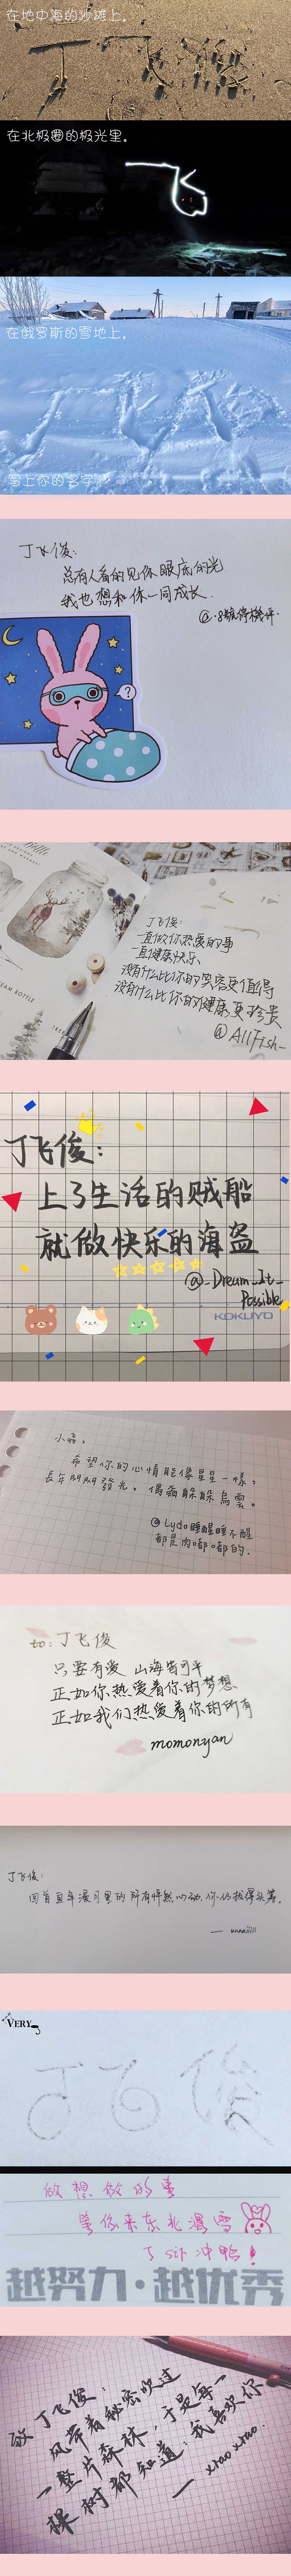 在地中海的沙滩上。
丁飞俊
在北极圈的极光里。
飞
在俄罗斯的雪地上。
丁飞
写上你的名字
丁飞俊:
总有人看的见你眼底的光
我也想和你一同成长.
?
丁飞俊:
一直做你热爱的事
一直健康快乐
没有什么比你的笑容更值得
没有什么比你的健康更珍贵
@AllFish_
丁飞俊:
上了生活的贼船
就做快乐的海盗
@_Dream_It_
Possible
KOKUYO
希望你的心情能像星星一樣,
長年閃閃發光。偶爾躲躲烏雲。
@Lydo睡醒睡不醒
都是肉嘟嘟的.
to:丁飞俊
只要有爱 山海皆可平
正如你热爱着你的梦想
正如我们热爱着你的所有
momonyan
丁飞俊:
VERY
丁飞俊
做想做的事
等你来东北滑雪
冲鸭!
越努力·越优秀
致丁飞俊:
风带着秘密吹过
一整片森林,于是每一
棵树都知道:我喜欢你
—xtaoxtao.